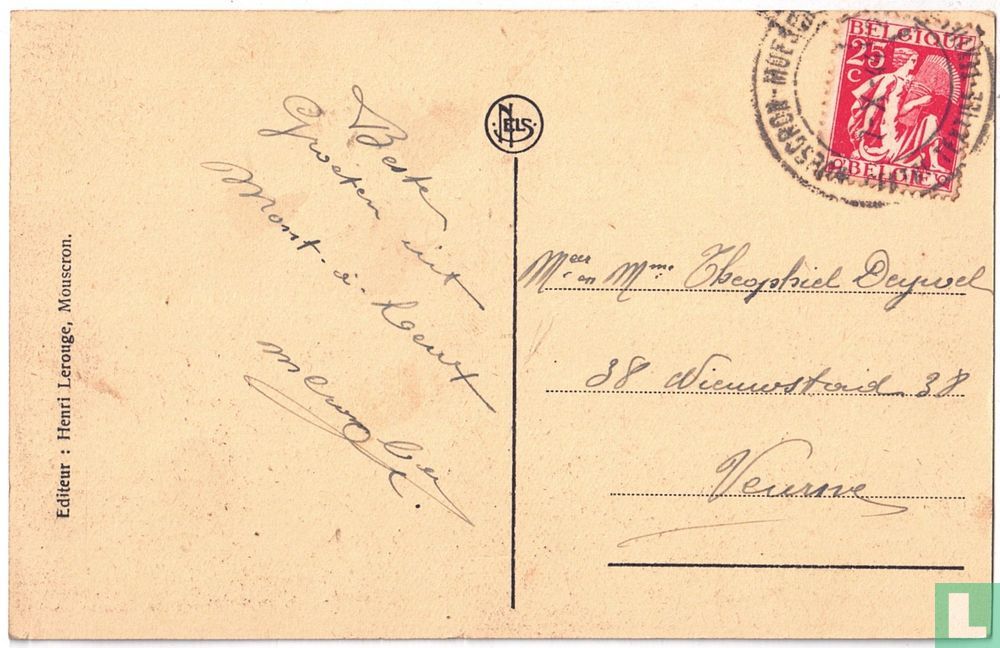 Editeur : Henri Lerouge, Mouscron.
Beste
Groeten uit
Mont-à-Leux
NELS
BELGIQUE
25
C
BELGIË
MOUSCRON - MOES
Meer en Mme Theophiel
38 Nieuwstad 38
Veurne
L